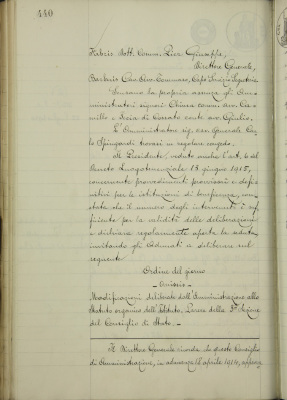 440
Fabris Dott. Comm. Pier Giuseppe,
Direttore Generale,
Barberis Cav. Avv. Tommaso, Capo Servizio Segreteria
la propria assenza gli Am-
ministratori signori Chiesa comm. avv. Ca-
millo e Scesia di Cossato conte avv. Giulio.
L'Amministratore sig. cav. Generale Car-
lo Spingardi trovasi in regolare congedo.
Il Presidente, veduto anche l'art. 6 del
Decreto Luogotenenziale 13 giugno 1915,
concernente provvedimenti provvisori e defi-
nitivi per le istituzioni di beneficenza, con-
stata che il numero degli intervenuti è suf-
ficiente per la validità delle deliberazioni
e dichiara regolarmente aperta la seduta
invitando gli Adunati a deliberare sul
seguente
Ordine del giorno
Modificazioni deliberate dall'Amministrazione allo
Statuto organico dell'Istituto. Parere della Sezione
del Consiglio di Stato.
Il Direttore Generale ricorda che questo Consiglio
di Amministrazione, in adunanza aprile 1914, approva